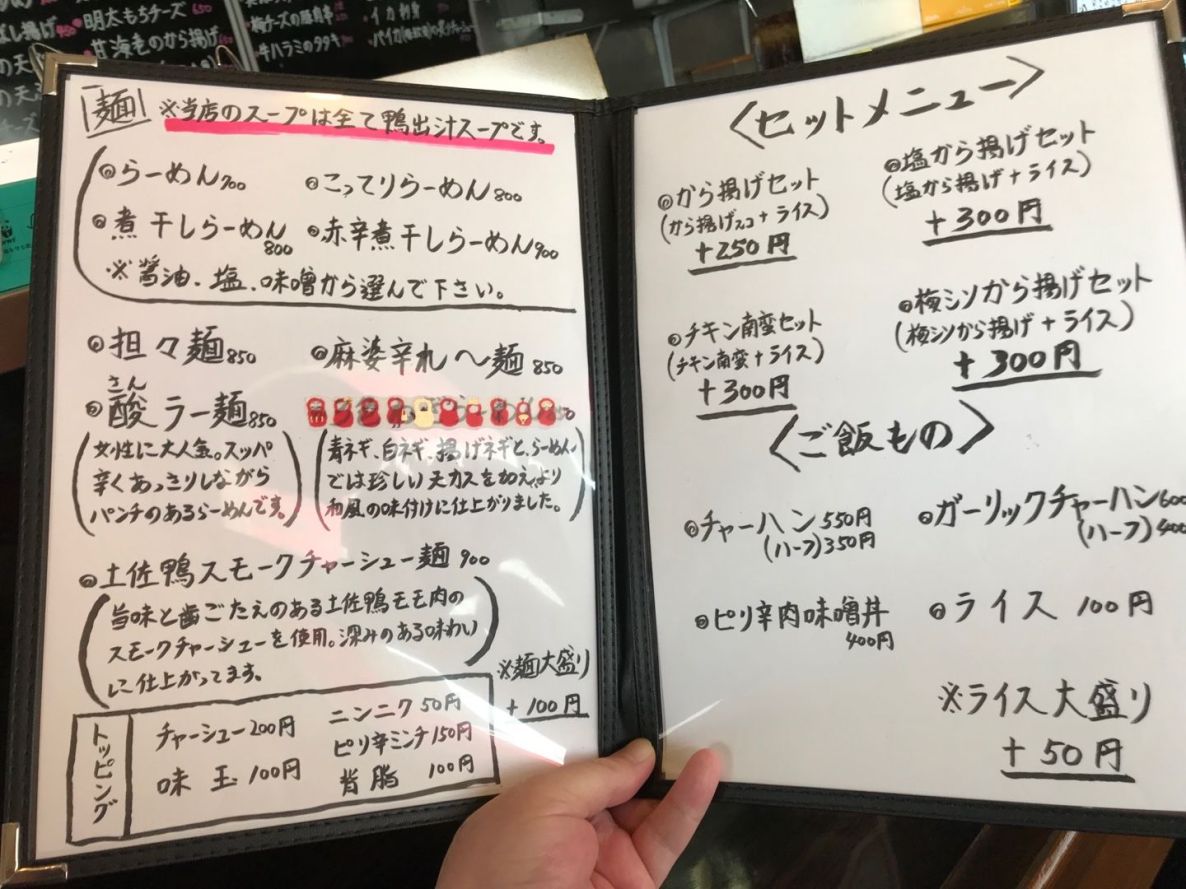 明太もちチーズ 650
甘海老のから揚げ
梅チーズの豚肉串
牛ハラミのタタキ
イカ刺身
麺 ※当店のスープは全て鴨出汁スープです。
らーめん700
こってりらーめん800
煮干しらーめん800
赤辛煮干しらーめん900
※醤油、塩、味噌から選んで下さい。
担々麺850
麻婆辛れ〜麺850
さん
酸ラー麺850
(女性に大人気。スッパ
辛くあっさりしながら
パンチのあるらーめんです。)
(青ネギ、白ネギ、揚げネギと、らーめん
では珍しい天カスを加え、より
和風の味付けに仕上がりました。)
土佐鴨スモークチャーシュー麺 900
(旨味と歯ごたえのある土佐鴨モモ肉の
スモークチャーシューを使用。深みのある味わい
に仕上がってます。)
※麺大盛り
+100円
トッピング
チャーシュー200円
ニンニク50円
ピリ辛ミンチ150円
味玉100円
背脂100円
<セットメニュー>
から揚げセット
(から揚げ2コ+ライス)
+250円
塩から揚げセット
(塩から揚げ+ライス)
+300円
チキン南蛮セット
(チキン南蛮+ライス)
+300円
梅シソから揚げセット
(梅シソから揚げ+ライス)
+300円
<ご飯もの>
チャーハン550円
(ハーフ)350円
ガーリックチャーハン600
(ハーフ)400
ピリ辛肉味噌丼
400円
ライス 100円
※ライス大盛り
+50円